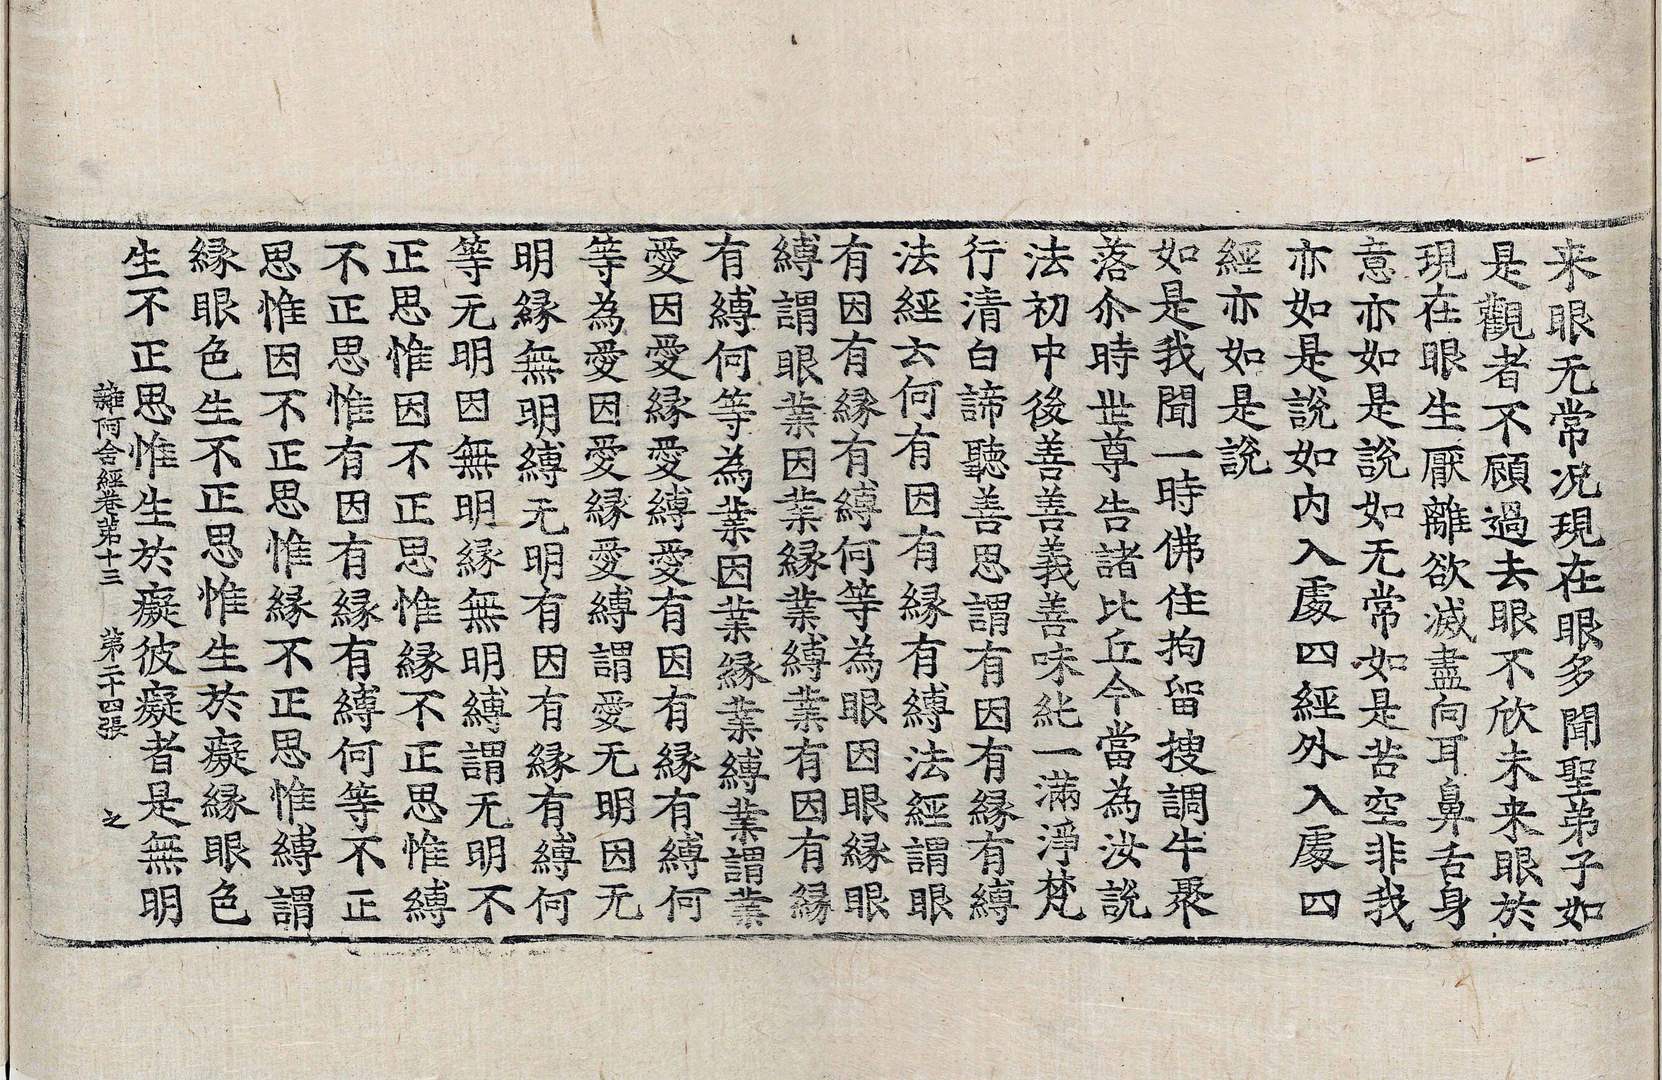 来眼无常况現在眼多聞聖弟子如
是觀者不顧過去眼不欣未来眼於
現在眼生厭離欲滅盡向耳鼻舌身
意亦如是說如无常如是苦空非我
亦如是說如内入處四經外入處四
經亦如是說
如是我聞一時佛住拘留搜調牛聚
落尒時世尊告諸比丘今當為汝說
法初中後善善義善味純一滿淨梵
行清白諦聽善思謂有因有縁有縛
法經云何有因有縁有縛法經謂眼
有因有縁有縛何等為眼因眼縁眼
縛謂眼業因業縁業縛業有因有縁
有縛何等為業因業縁業縛業謂業
愛因愛縁愛縛愛有因有縁有縛何
等為愛因愛縁愛縛謂愛无明因无
明縁無明縛无明有因有縁有縛何
等无明因無明縁無明縛謂无明不
正思惟因不正思惟縁不正思惟縛
不正思惟有因有縁有縛何等不正
思惟因不正思惟縁不正思惟縛謂
縁眼色生不正思惟生於癡縁眼色
生不正思惟生於癡彼癡者是無明
雜阿含經卷第十三 第二十四張 之